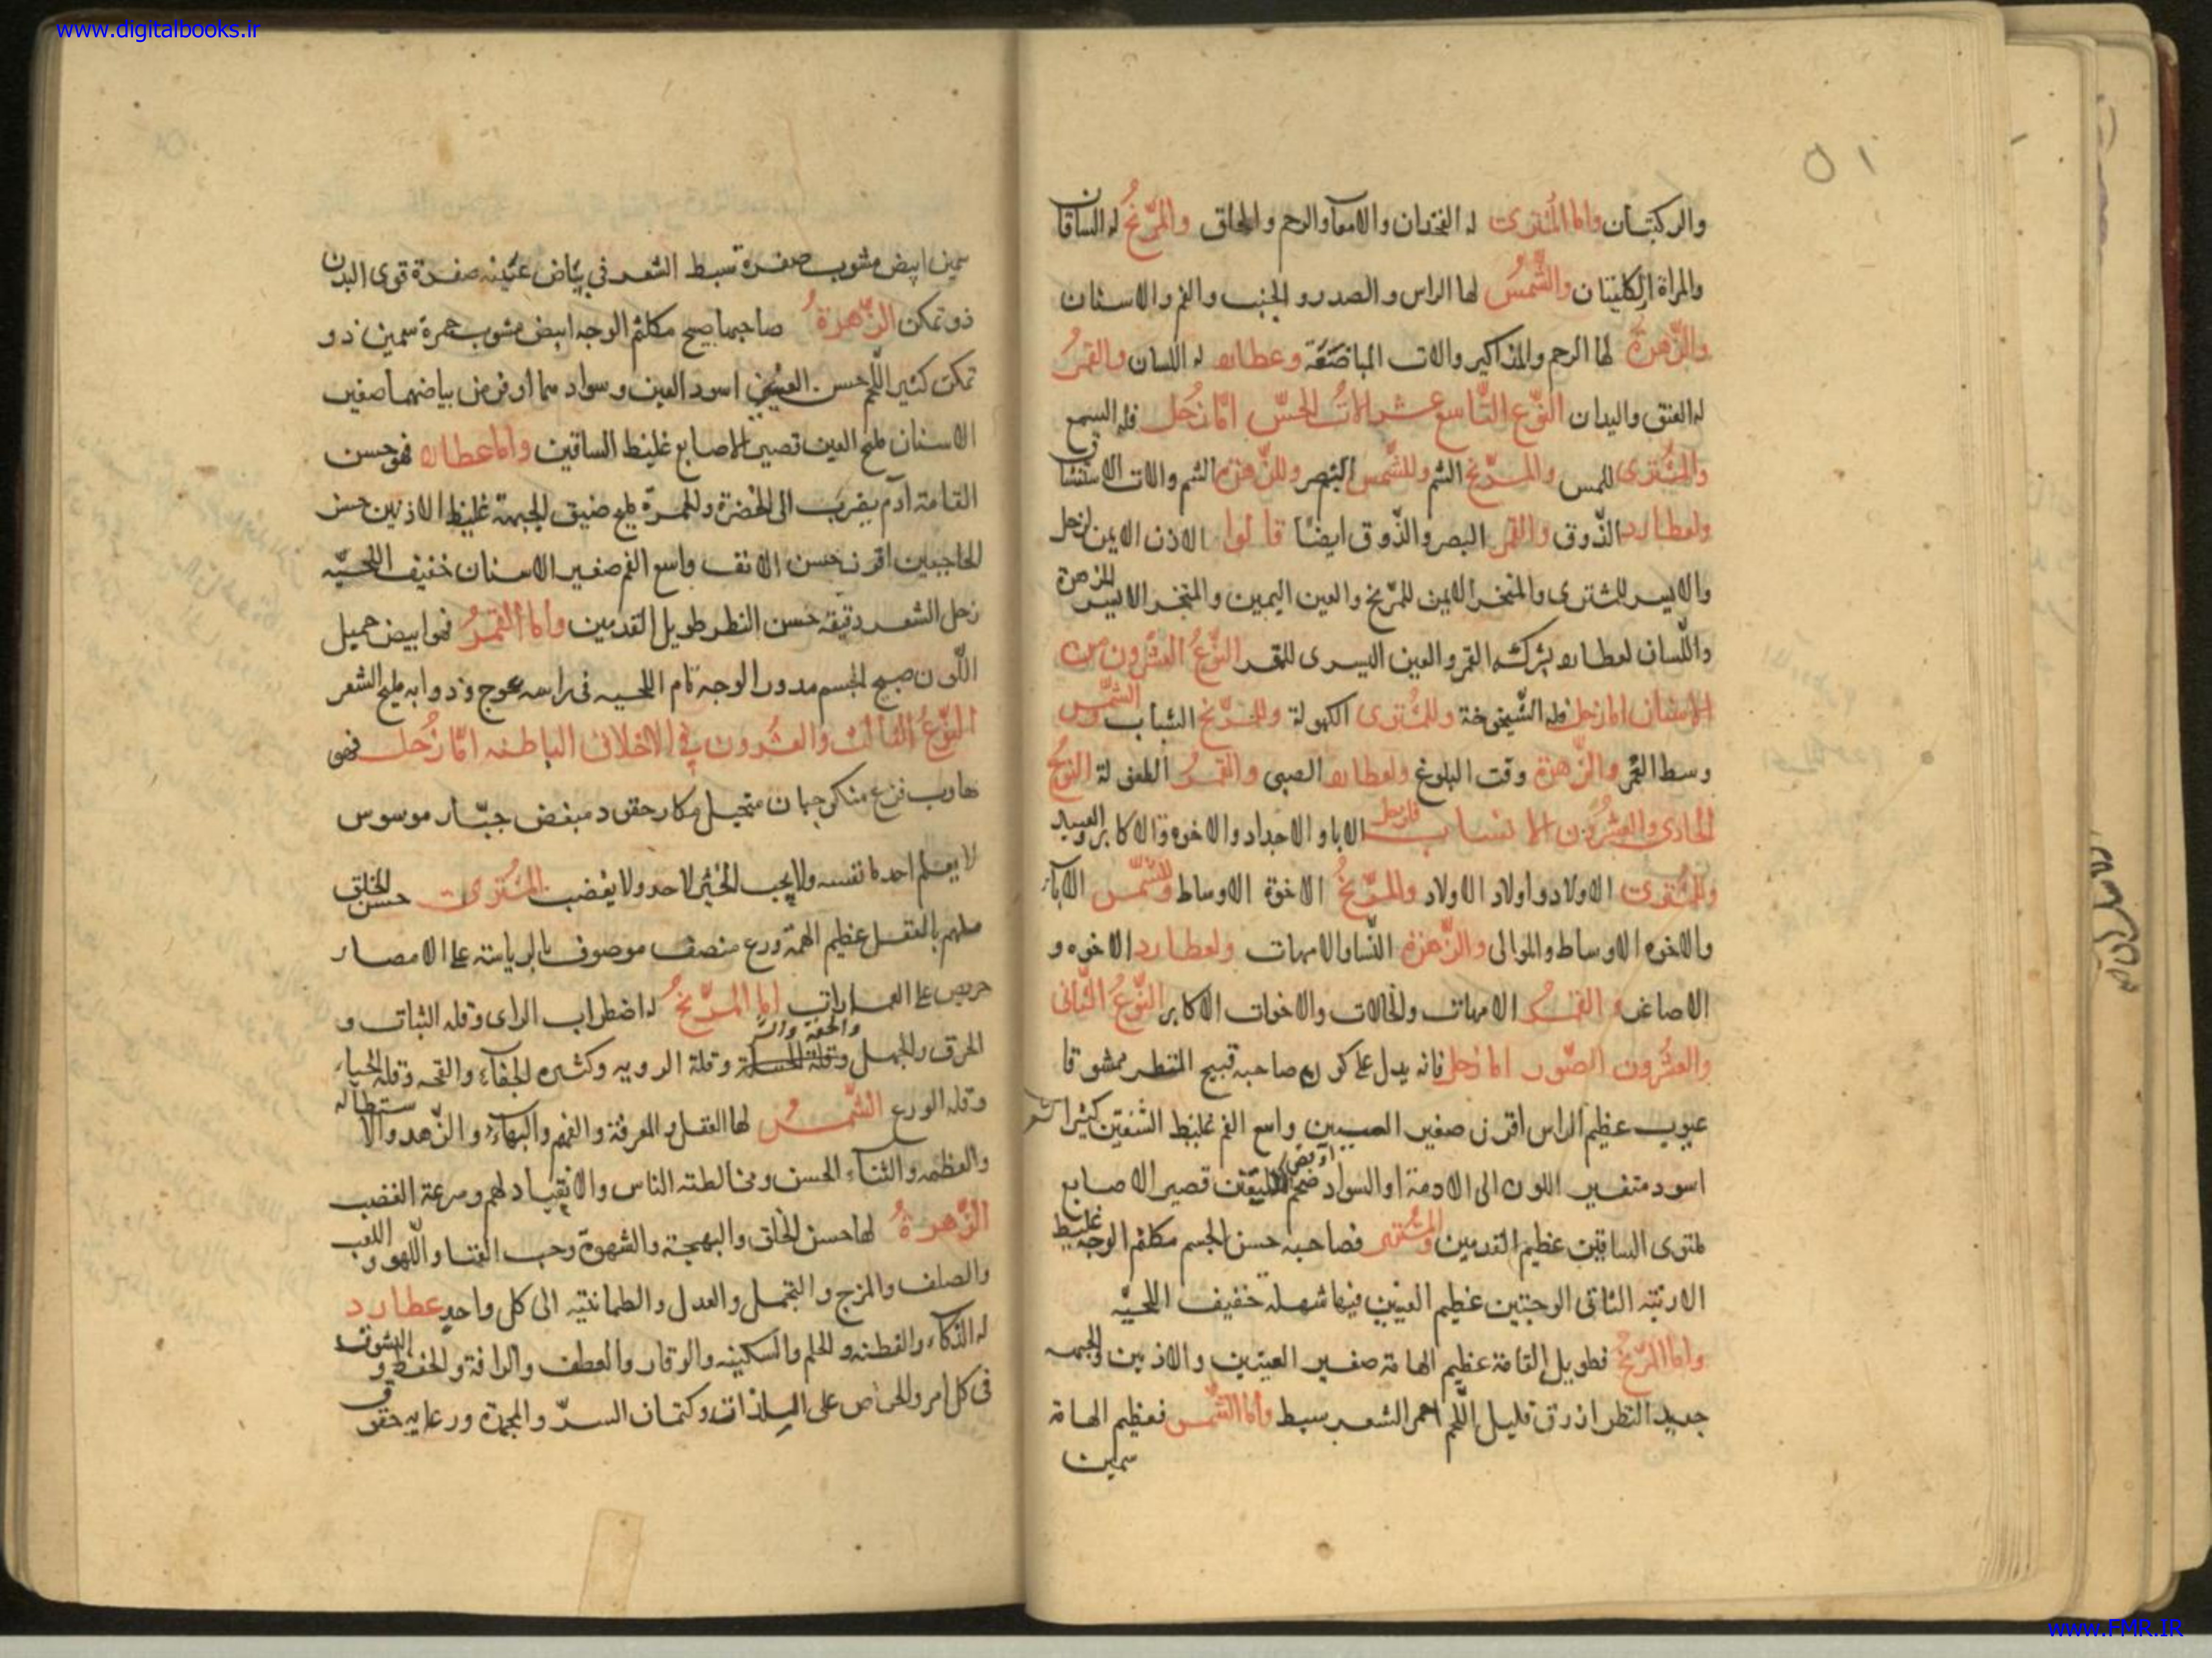 www.digitalbooks.ir
٥١
والركبتان واما المشترى له الفخذان والامعآ والرحم والحلق والمرّيخُ له الساقان
والمراة الكليتان والشّمسُ لها الراس والصدر والجنب والفم والاسنان
والزّهرة لها الرحم والمذاكير والات المباضعَة وعطارد له اللسان والقمرُ
له العنق واليدان النّوع التّاسع عشر الاتُ الحسّ امّا زُحل فله السمع
والمشترى للمس والمرّيخ الشم وللشّمس البصر وللزّهرة الشم والات الاستنشاق
ولعطارد الذّوق والقمر البصر والذّوق ايضًا قالوا الاذن الايمن لزحل
والايسر للمشترى والمنخر الايمن للمرّيخ والعين اليمين والمنخر الايسر للزهرة
واللّسان لعطارد بشركة القمر والعين اليسرى للقمر النّوعُ العشرون من
الاسنان اما زحل فله الشّيخوخة وللمشترى الكهولة وللمرّيخ الشباب والشّمس
وسط العمر والزّهرة وقت البلوغ ولعطارد الصبى والقمرُ الطفولة النوعُ
الحادى والعشرُون الانساب فلزحل الابا والاجداد والاخوة الاكابر والعبيد
وللمشترى الاولاد واولاد الاولاد وللمرّيخُ الاخوة الاوساط وللشّمس الابآ
والاخوه الاوساط والموالى والزّهرة النّسا والامهات ولعطارد الاخوه و
الاصاغر والقمرُ الامهات والخالات والاخوات الاكابر النّوعُ الثّانى
والعشرُون الصّور اما زحل فانه يدل على كون صاحبه قبيح المنظر ممشوقا
عبوب عظيم الراس اقرن صغير العينين واسع الفم غليظ الشفتين كثير الشعر
اسود متغير اللون الى الادمة او السواد ضخم قصير الاصابع
ملتوى الساقين عظيم القدمين والمشترى فصاحبه حسن الجسم مكلثم الوجه غليظ
الارنبة الناتى الوجنتين عظيم العينين فيها شهلة خفيف اللحيّه
واما المرّيخُ فطويل القامة عظيم الهامة صغير العينين والاذنين والجبهه
حديد النظر ازرق قليل اللّحم احمر الشعر سبط وامّا الشّمس فعظيم الهامة
سمين
سمين ابيض مشوب صفرة سبط الشعر فى بيَاض عيَنيه صفرة قوى البدن
ذو تمكن الزّهرةُ صاحبها صبيح مكلثم الوجه ابيض مشوب حمرة سمين ذو
تمكن كثير اللّحم حسن العينين اسود العين وسوادهما اوفر من بياضهما صغير
الاسنان مليح العين قصير الاصابع غليظ الساقين واما عطارد فهو حسن
القامة ادم يضرب الى الخضرة والحمرة مليح ضيق الجبهة غليظ الاذنين حسن
الحاجبين اقرن حسن الانف واسع الفم صغير الاسنان خفيف اللحيّه
رجل الشعر دقيقه حسن النظر طويل القدمين وامّا القمرُ فهو ابيض جميل
اللّون صبيح الجسم مدور الوجه تام اللحيه فى راسه عوج وذوابه مليح الشعر
النّوعُ الثالث والعشرون فى الاخلاق الباطنه امّا زُحل فهو
هارب فزع منكر جبان متخيل مكار حقود مبغض جبّار موسوس
لا يعلم احد ما نفسه ولا يحب الخير لاحد ولا يغضب المشترى حسن الخلق
ملهم بالعقل عظيم الهمة ورع منصف موصوف بالرياسة على الامصار
حريص على العمارات اما المرّيخُ له اضطراب الراى وقله الثبات و
الخرق والجهل والخفة وقلة الرويه وكثره الجفاء والقحه وقله الحياء
وقله الورع الشّمسُ لها العقل والمعرفة والفهم والبهاء والزّهد والاستطاله
والعظمه والثناء الحسن ومخالطته الناس والانقياد لهم وسرعة الغضب
الزّهرةُ لها حسن الخلق والبهجة والشهوة وحب الغنا واللّهو واللعب
والصلف والمزح والتجمل والعدل والطمانينه الى كل واحد عطارد
له الذكاء والفطنه والحلم والسكينه والوقار والعطف والرافة والحفظ والشوق
فى كل امر والحرص على اللذات وكتمان السرّ والنجدة ورعايه حقوق
www.FMR.IR